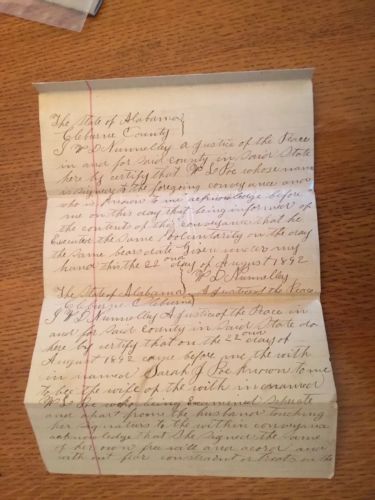 The State of Alabama}
Cleburne County}
I W D Nunnelley a Justice of the Peace
in and for said county in said State
here by certify that W S Poe whose name
is signed to the foregoing conveyance and
who is known to me acknowledge before
me on this day that being informed of
the contents of the conveyance that he
Executed the same voluntarily on the day
the same bears date Given under my
hand this the 22 ond day of August 1892
W. D. Nunnelley
The State of Alabama } A Justice of the Peace
Cleburne County
I W D Nunnelley A Justice of the Peace in
and for said County in said State do
here by certify that on the 22 ond day of
August 1892 came before me the with
in named Sarah J Poe Known to me
to be the wife of the with in named
W S Poe who being Examined seperate
and apart from the husband touching
her signature to the within conveyance
acknowledge that she signed the same
of her own free will and acord and
with out fear constraint or